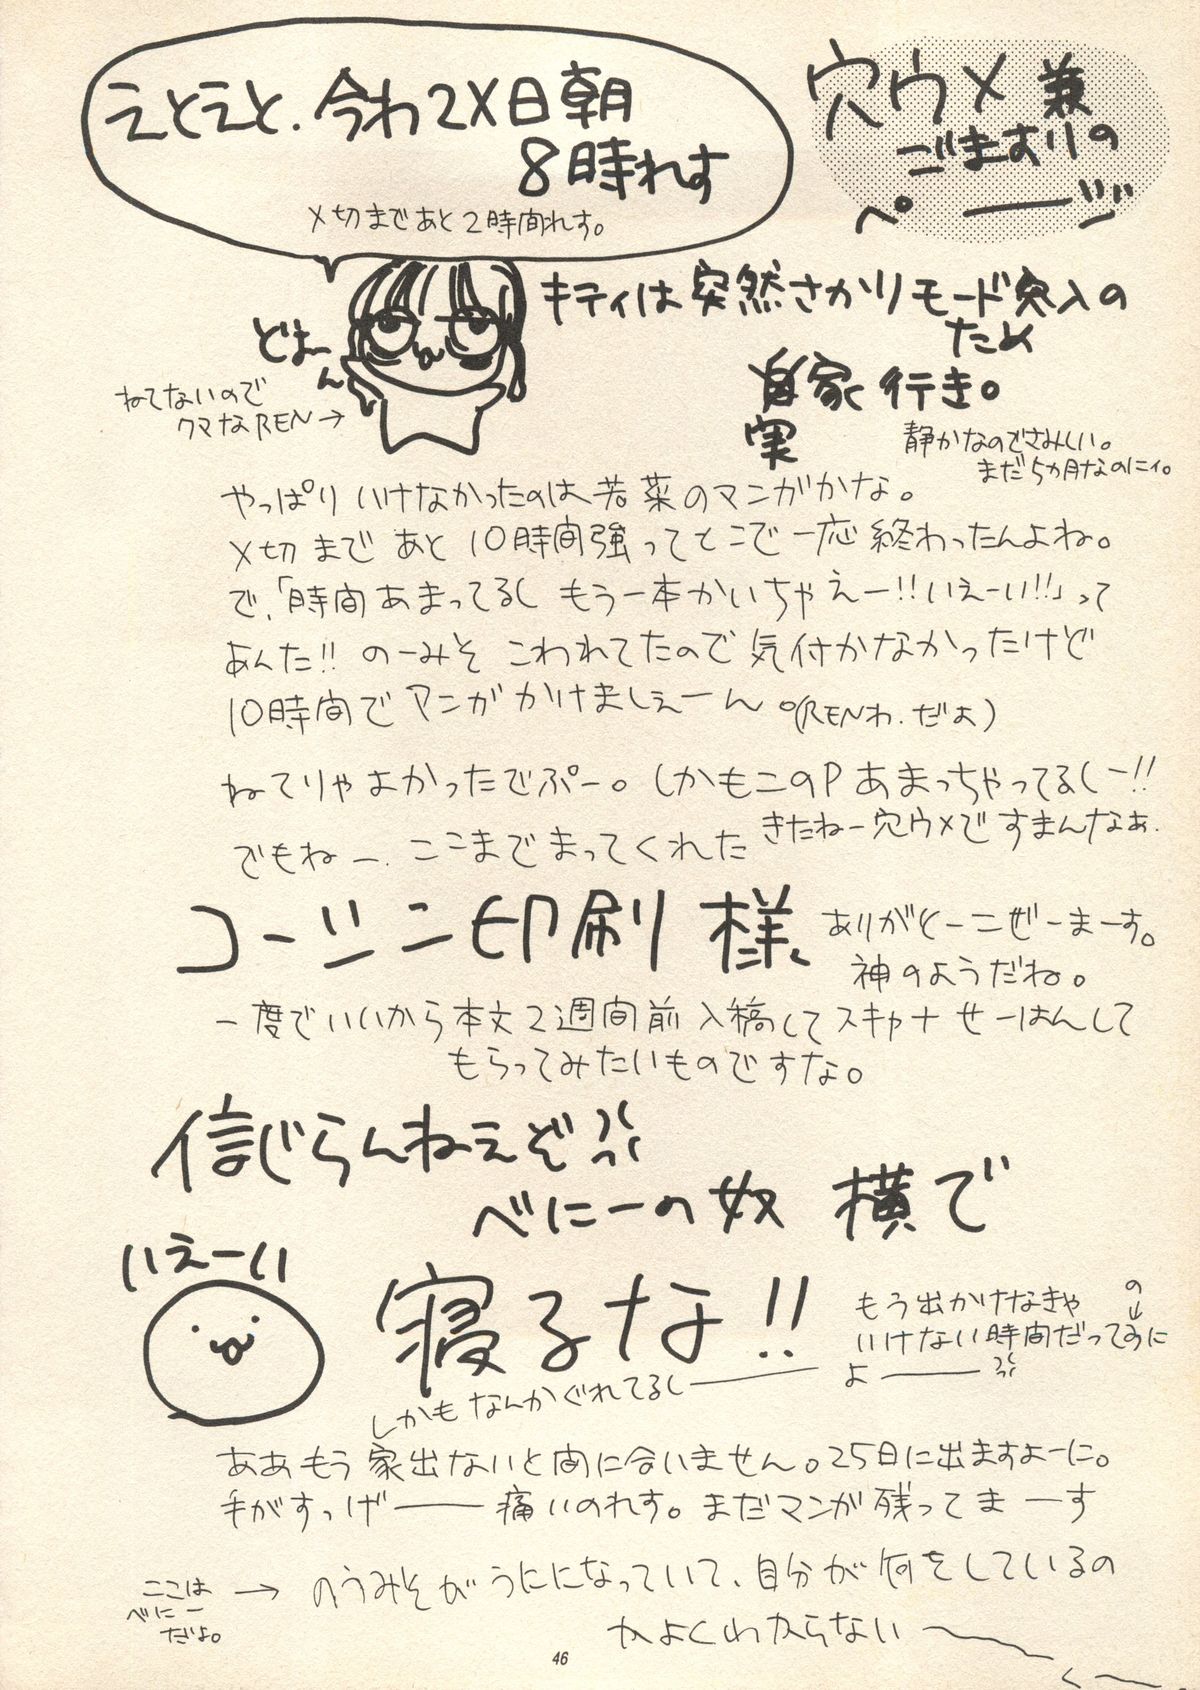 えとえと.今わ2X日朝
8時れす
〆切まであと2時間れす。
穴ウメ兼
ごますりの
ページ
どよーん
ねてないので
クマなREN→
キティは突然さかりモード突入の
ため
実家行き。
静かなのでさみしい。
まだ5カ月なのにィ。
やっぱりいけなかったのは若菜のマンガかな。
〆切まであと10時間強ってとこで一応終わったんよね。
で、「時間あまってるしもう一本かいちゃえー!!いえーい!!」って
あんた!!のーみそこわれてたので気付かなかったけど
10時間でマンガかけましぇーん。(RENわ.だよ)
ねてりゃよかったでぷー。しかもこのPあまっちゃってるしー!!
きたねー穴ウメですまんなぁ.
でもねー.ここまでまってくれた
コーシン印刷様、
ありがとーこぜーまーす。
神のようだね。
一度でいいから本文2週間前入稿してスキャナせーはんして
もらってみたいものですな。
信じらんねえぞ
べにーの奴横で
いえーい
寝るな!!
しかもなんかぐれてるしー
もう出かけなきゃ
の
↓
いけない時間だってに
よー
ああもう家出ないと間に合いません。25日に出ますよーに。
手がすっげー痛いのれす。まだマンガ残ってまーす
ここは
べにー
だよ。
→ のうみそがうにになっていて、自分が何をしているの
かよくわからない〜
46